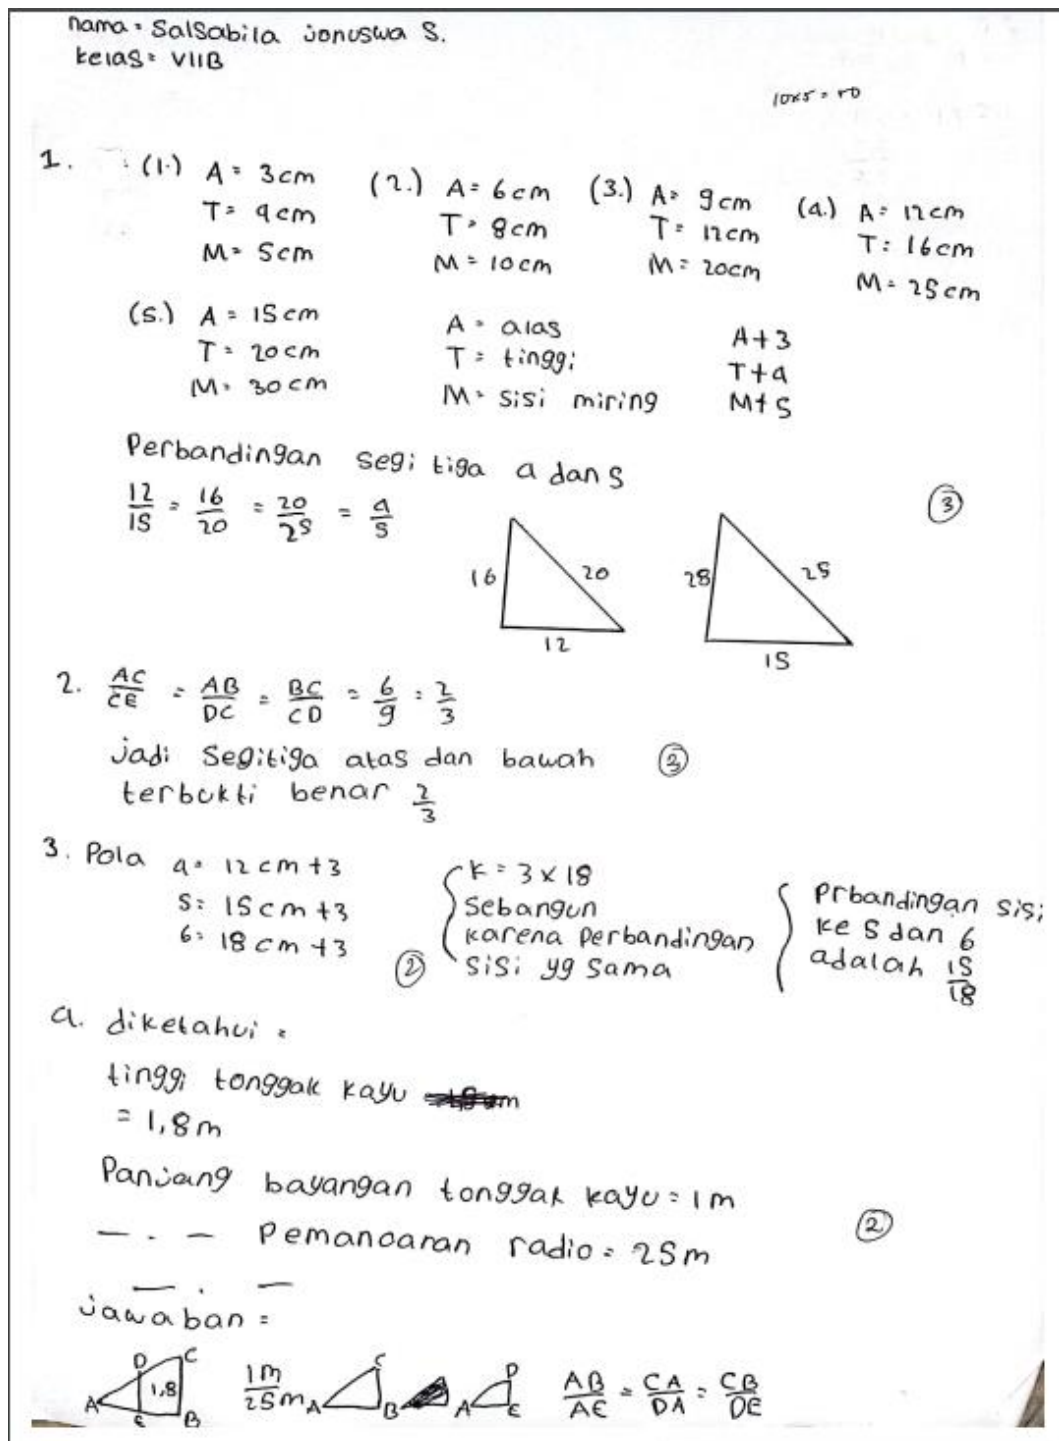 nama = Salsabila jonuswa S.
kelas = VIIB
10x5 = 50
1. (1.) A = 3cm (2.) A = 6cm (3.) A = 9cm (4.) A = 12cm
T = 4cm T = 8cm T = 12cm T = 16cm
M = 5cm M = 10cm M = 20cm M = 25cm
(5.) A = 15cm A = alas A+3
T = 20cm T = tinggi T+4
M = 30cm M = sisi miring M+5
Perbandingan segi tiga 4 dan 5
12/15 = 16/20 = 20/25 = 4/5
3
16 20 12
28 25 15
2. AC/CE = AB/DC = BC/CD = 6/9 = 2/3
jadi segitiga atas dan bawah 3
terbukti benar 2/3
3. Pola 4 = 12cm+3
5 = 15cm+3
6 = 18cm+3
2
k = 3x18
Sebangun
karena Perbandingan
sisi yg sama
Prbandingan sisi
ke 5 dan 6
adalah 15/18
4. diketahui =
tinggi tonggak kayu
= 1,8m
Panjang bayangan tonggak kayu = 1m
2
— . — Pemancaran radio = 25m
— . —
jawaban =
A D C 1,8 E B 1m/25m A C B A D E AB/AE = CA/DA = CB/DE